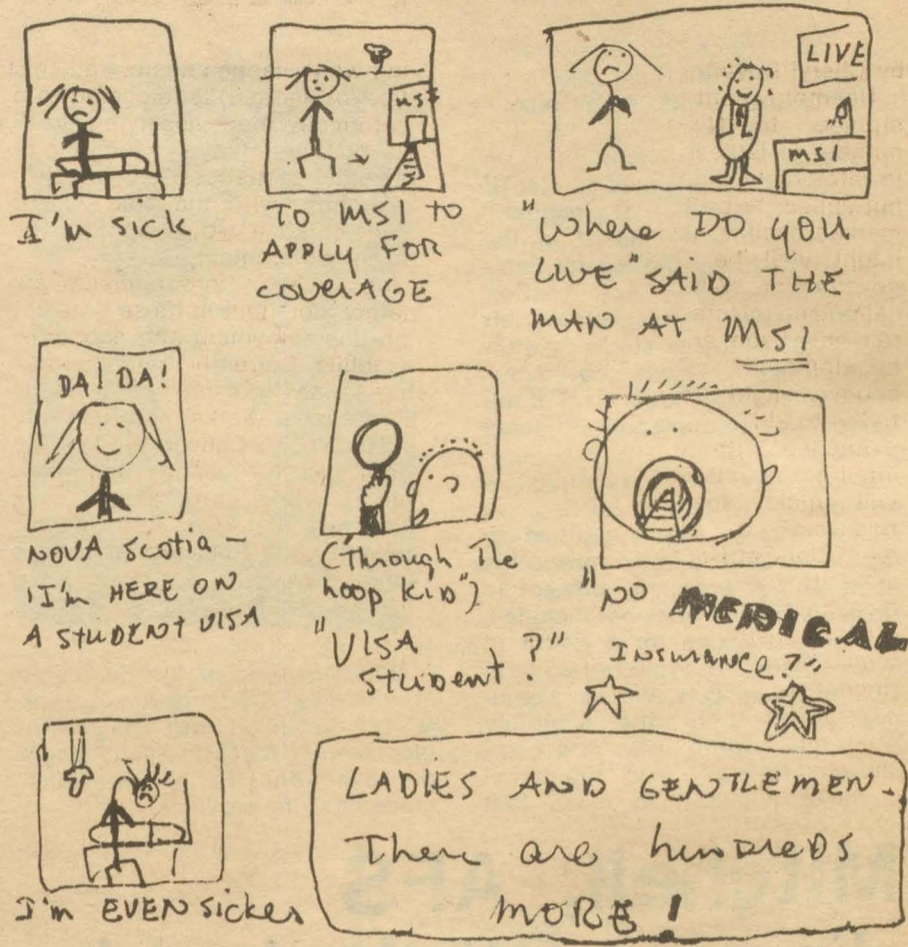 I'm sick
MSI
TO MSI TO
APPLY FOR
COVERAGE
LIVE
MSI
"Where DO YOU
LIVE" SAID THE
MAN AT MSI
DA! DA!
NOVA Scotia –
'I'm HERE ON
A STUDENT VISA
(Through The
hoop KID")
"VISA
STUDENT?"
"NO MEDICAL
INSURANCE?"
I'm EVEN Sicker
LADIES AND GENTLEMEN.
There are hundreds
MORE!